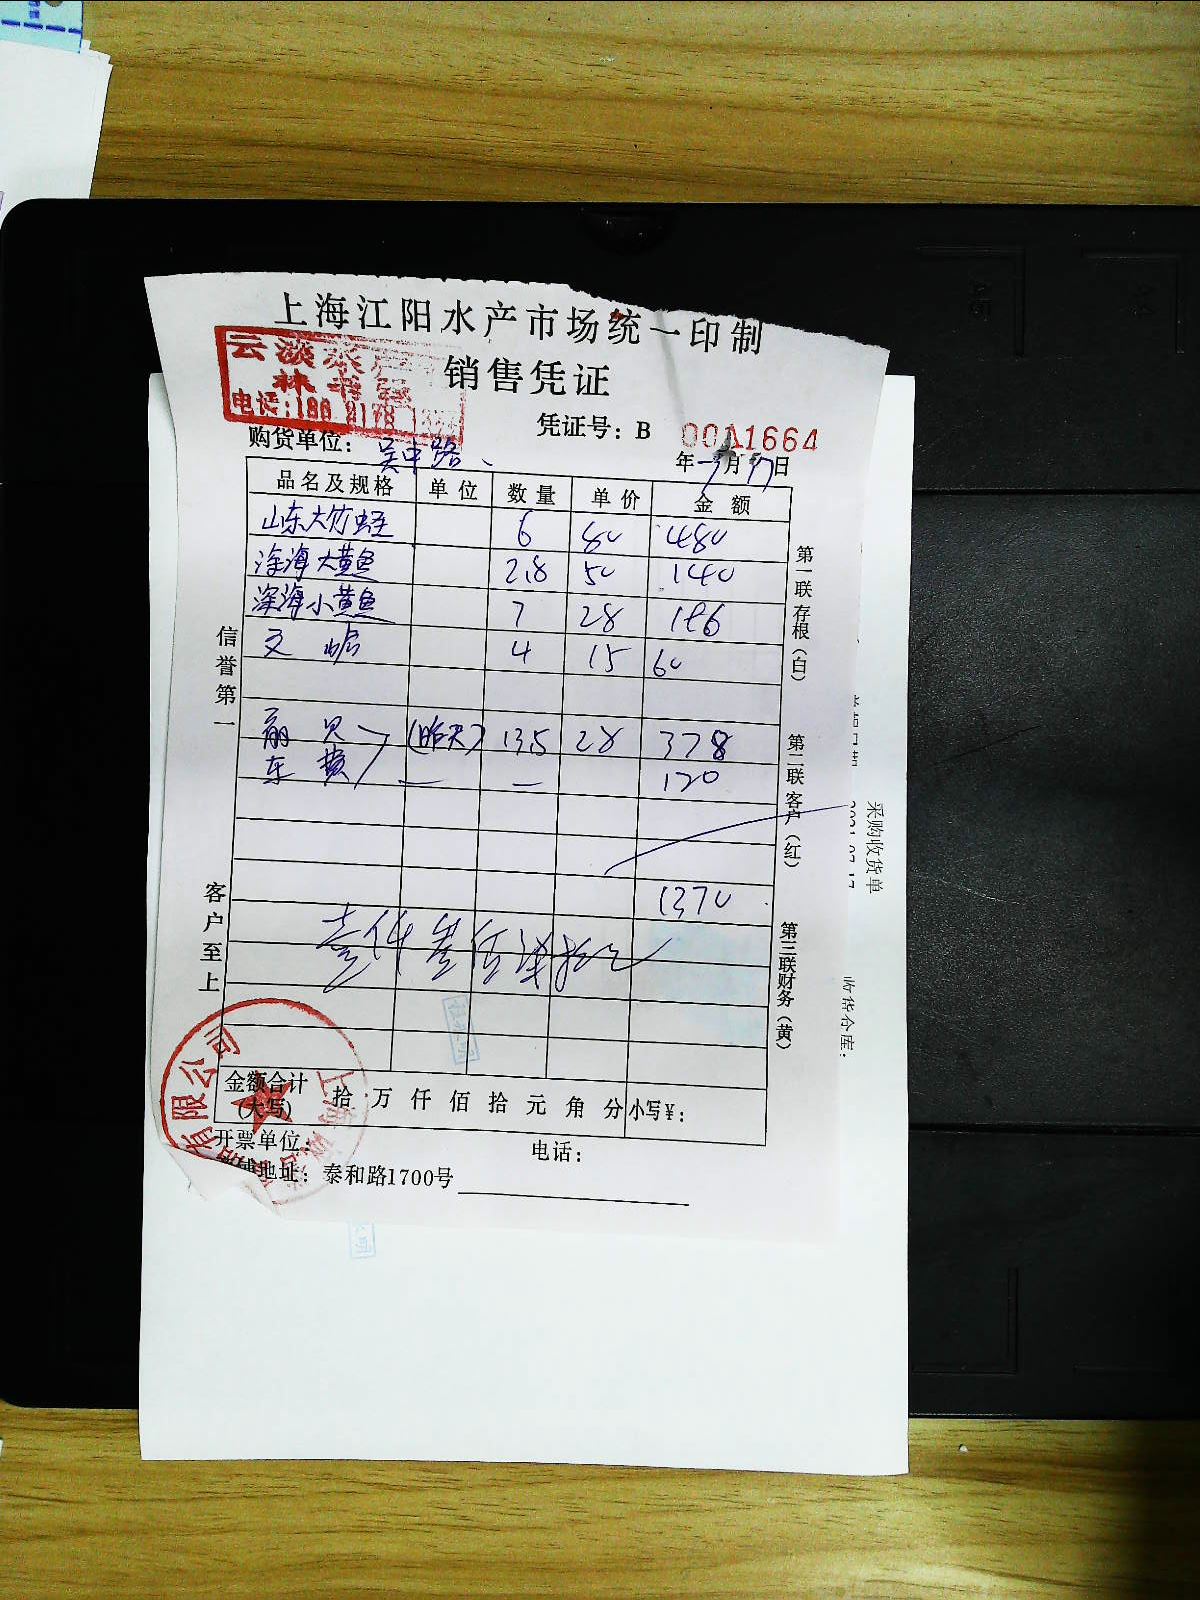 上海江阳水产市场统一印制
销售凭证
云淡水产
林书强
电话:180 2178
凭证号: B 0011664
购货单位: 吴中路
年 7月 17日
品名及规格 单位 数量 单价 金额
山东大竹蛏 6 80 480
深海大黄鱼 2.8 50 140
深海小黄鱼 7 28 196
文蛤 4 15 60
扇贝 (昨天) 13.5 28 378
车费 — — 120
1370
壹仟叁佰柒拾元
信誉第一
客户至上
第一联存根(白)
第二联客户(红)
第三联财务(黄)
金额合计(大写) 拾 万 仟 佰 拾 元 角 分 小写¥:
开票单位:
电话:
地址: 泰和路1700号
有限公司
上海
采购收货单
收货仓库: